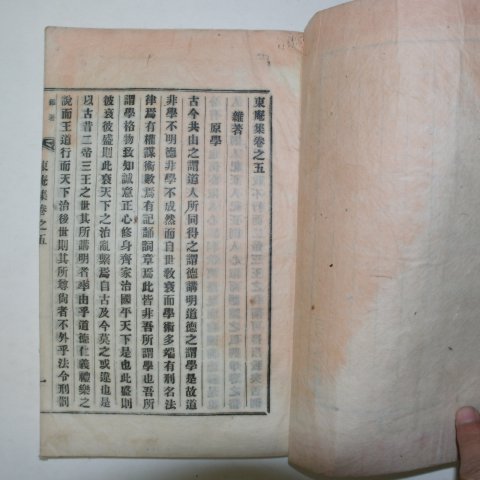 東庵集卷之五
雜著
原學
古今共由之謂道人所同得之謂德講明道德之謂學是故道
非學不明德非學不成然而自世敎衰而學術多端有刑名法
律焉有權謀術數焉有記誦詞章焉此皆非吾所謂學也吾所
謂學格物致知誠意正心修身齊家治國平天下是也此盛則
彼衰彼盛則此衰天下之治亂繫焉自古及今莫之或違也是
以古昔二帝三王之世其所講明者率由乎道德仁義禮樂之
說而王道行而天下治後世則其所尊尙者不外乎法令刑罰
雜著
東庵集卷之五
一